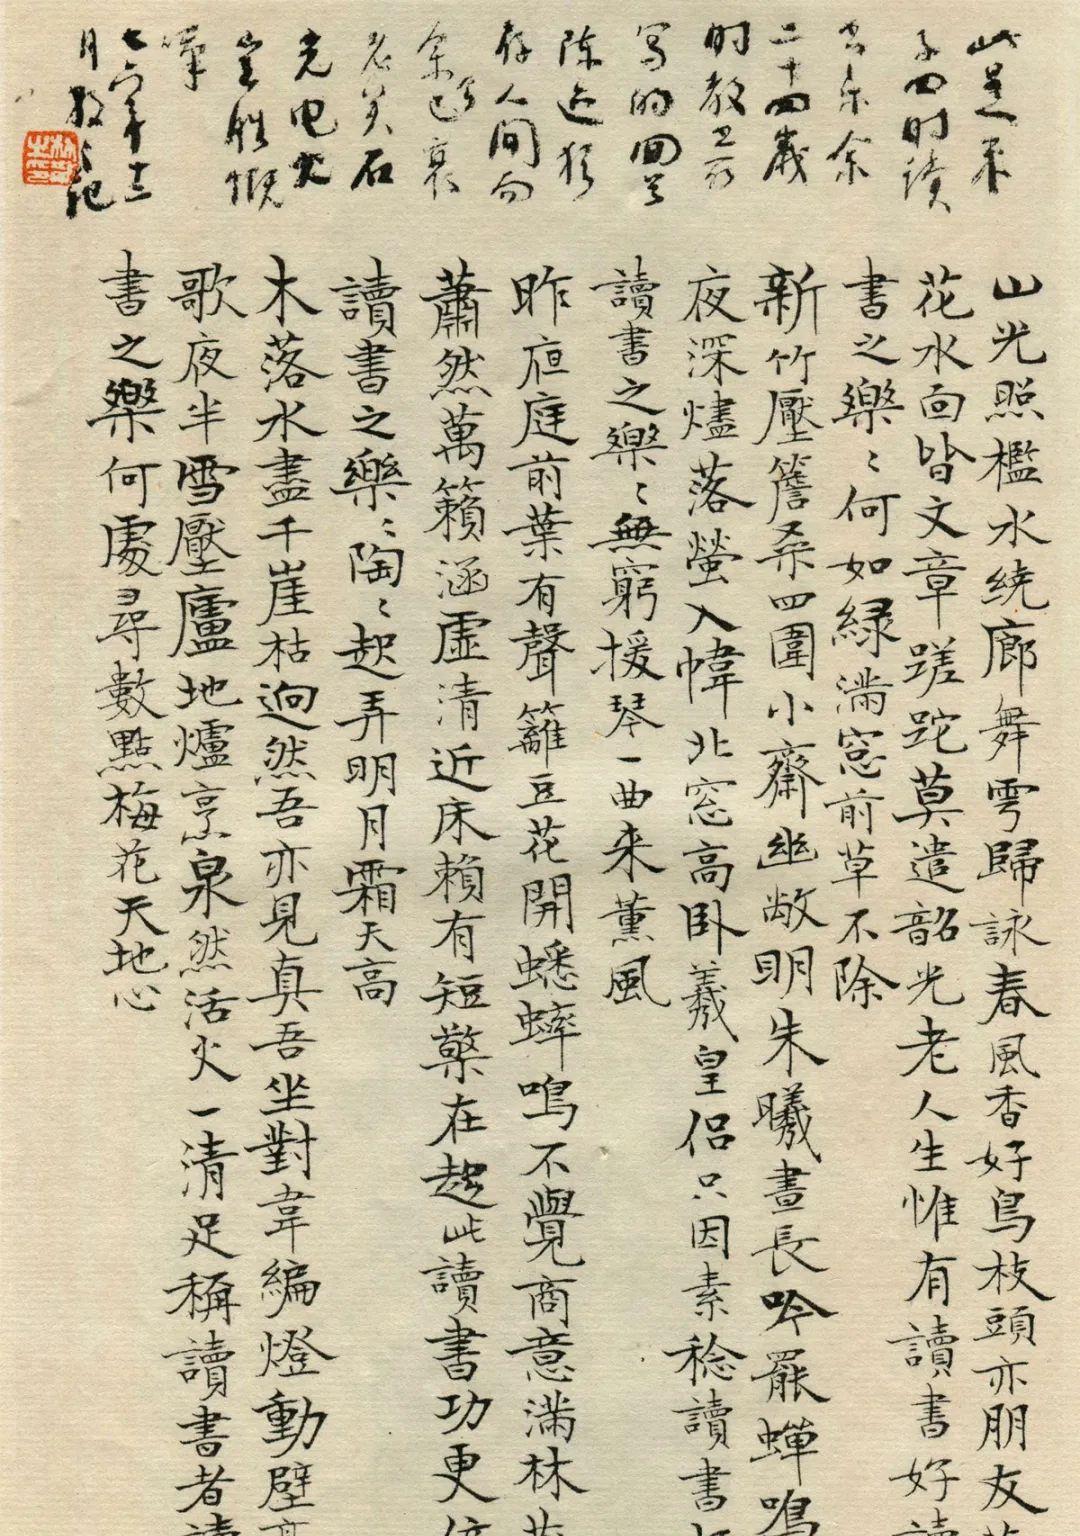 此是朱
子四时读
书乐余
二十四岁
时教书所
写的回首
陈迹犹
存人间而
余已衰
老矣石
火电光
岂胜慨
嘆
七六年十三
月散之记
山光照檻水繞廊舞雩歸詠春風香好鳥枝頭亦朋友落
花水面皆文章蹉跎莫遣韶光老人生惟有讀書好讀
書之樂〻何如緑滿窓前草不除
新竹壓簷桑四圍小齋幽敞明朱曦晝長吟罷蟬鳴
夜深燼落螢入幃北窓高卧羲皇侣只因素稔讀書
讀書之樂〻無窮援琴一曲来薰風
昨夜庭前葉有聲籬豆花開蟋蟀鳴不覺商意滿林薄
蕭然萬籟涵虚清近床賴有短檠在起此讀書功更倍
讀書之樂〻陶〻起弄明月霜天高
木落水盡千崖枯迥然吾亦見真吾坐對韋編燈動壁高
歌夜半雪壓廬地爐烹泉然活火一清足稱讀書者讀
書之樂何處尋數點梅花天地心